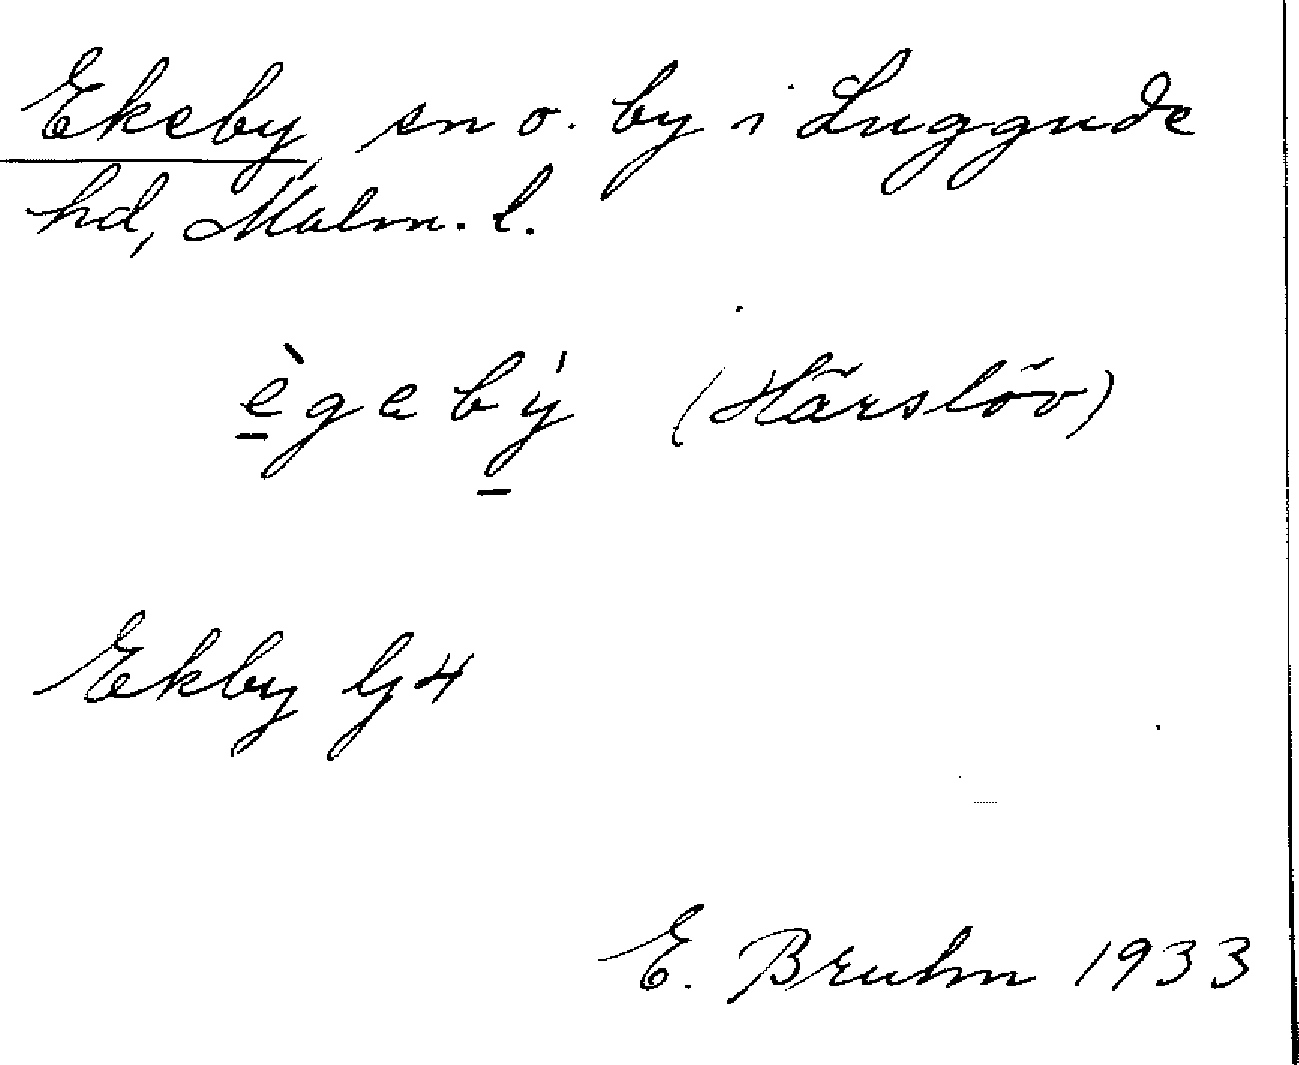 Ekeby, sn o. by i Luggude
hd, Malm. l.
è̱gebý̱ (Härslöv)
Ekby G4
E. Bruhn 1933